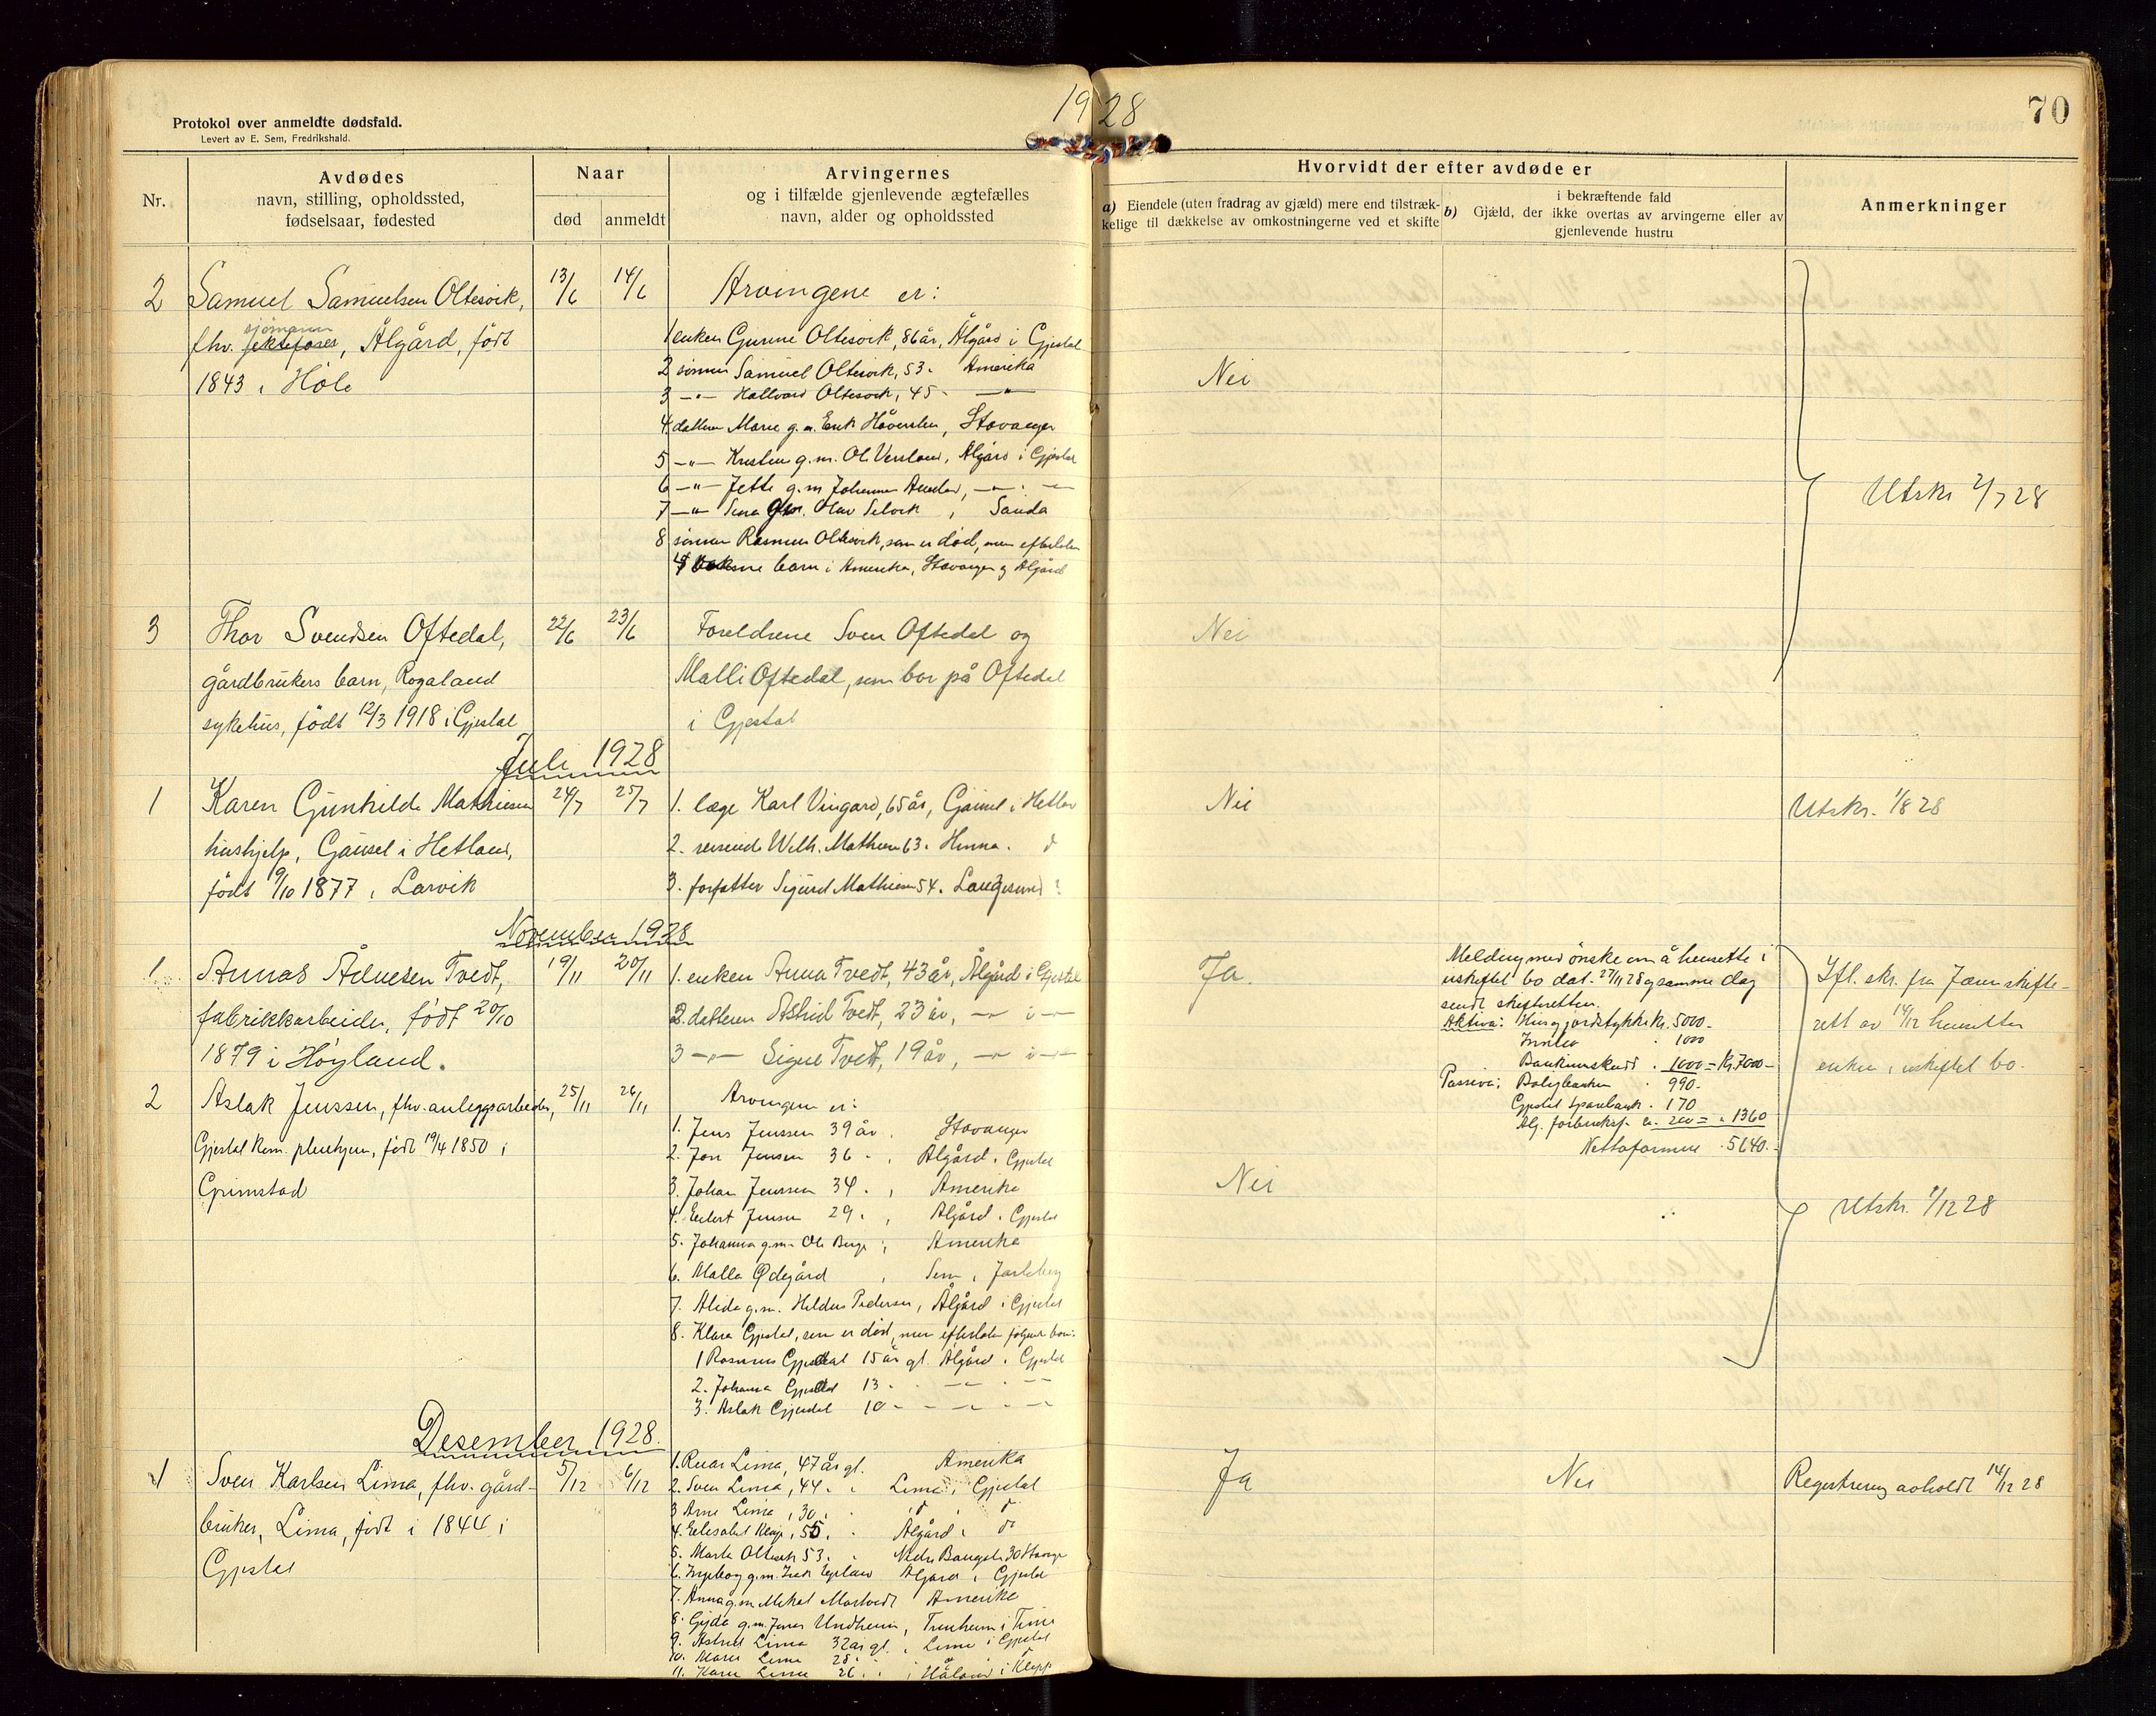 1928
70
Protokol over anmeldte dødsfald.
Levert av E. Sem, Fredrikshald.
Nr.
Avdødes
navn, stilling, opholdssted,
fødselsaar, fødested
Naar
død
anmeldt
Arvingernes
og i tilfælde gjenlevende ægtefælles
navn, alder og opholdssted
Hvorvidt der efter avdøde er
a) Eiendele (uten fradrag av gjæld) mere end tilstræk-
kelige til dækkelse av omkostningerne ved et skifte
b) i bekræftende fald
Gjæld, der ikke overtas av arvingerne eller av
gjenlevende hustru
Anmerkninger
2
Samuel Samuelsen Oltesvik,
sjömann
fhv. jektefører, Ålgård, født
1843 i Höle
13/6
14/6
Arvingene er:
1 enken Gurine Oltesvik, 86 år, Ålgård i Gjestal
2 sønnen Samuel Oltesvik, 53 - Amerika
3 -"- Hallvard Oltesvik, 45 - -"-
4 datteren Marie g.m. Erik Håversten, Stavanger
5 -"- Kristen g.m. Ole Versland, Ålgård i Gjestal
6 -"- Jette g.m. Johannes
7 -"- Sina g.m. Olav Selvik, Sauda
8 sønnen Rasmus Oltesvik, som er död, men efterlater
4 voksne barn i Amerika, Stavanger og Ålgård
Nei
Utskr 2/7 28
3
Thor Svendsen Oftedal,
gårdbrukers barn, Rogaland
sykehus, født 12/3 1918 i Gjestal
22/6
23/6
Foreldrene Sven Oftedal og
Malli Oftedal, som bor på Oftedal
i Gjestal
Nei
Juli 1928
1
Karen Gunhilde Mathiesen
hushjelp, Gausel i Hetland,
født 9/10 1877 i Larvik
24/7
25/7
1. læge Karl Vingard, 65 år, Gausel i Hetland
2. reisende Wilh. Mathiesen 63 - Hinna.
3. forfatter Sigurd Mathiesen 54 - Langesund
Nei
Utskr. 1/8 28
November 1928
1
Annas Ådnesen Tvedt,
fabrikkarbeider, født 20/10
1879 i Höyland.
19/11
20/11
1. enken Anna Tvedt, 43 år, Ålgård i Gjestal
2. datteren Astrid Tvedt, 23 år, -"- i -"-
3 -"- Signe Tvedt, 19 år, -"- i -"-
Ja.
Melding med önske om å hensette i
uskiftet bo dat. 27/11 28 og samme dag
sendt skifteretten.
Aktiva: Hus og jordstykke kr. 5000 -
Innbo - 1000
Bankinnskudd - 1000 = kr. 7000 -
Passiva: Boligbanken - 990 -
Gjestal Sparebank - 170
Alg. forbruksf. ca. 200 = - 1360
Nettoformue - 5640 -
Ifl. skr. fra Jæren skifte-
rett av 14/12 hensitter
enken i uskiftet bo.
2
Aslak Jenssen, fhv. anleggsarbeider,
Gjestal kom. pleiehjem, født 19/4 1850 i
Grimstad
25/11
26/11
Arvingene er:
1. Jens Jenssen 39 år, Stavanger
2. Jon Jenssen 36 - , Ålgård i Gjestal
3. Johan Jenssen 34 - , Amerika
4. Eilert Jenssen 29 - , Ålgård i Gjestal
5. Johanna g.m. Ole Berge, Amerika
6. Malla Ødegård, Sem i Jarlsberg
7. Alida g.m. Hildus Pedersen, Ålgård i Gjestal
8. Klara Gjestal, som er död, men efterlater følgende barn:
1 Rasmus Gjesdal 15 år gl. Ålgård i Gjestal
2. Johanna Gjesdal 13 -
3. Aslak Gjesdal 10 -
Nei
Utskr. 1/12 28
Desember 1928.
1
Sven Karlsen Lima, fhv. gård-
bruker, Lima, født i 1844 i
Gjestal
5/12
6/12
1. Lima, 47 år gl. Amerika
2. Sven Lima, 44 - Lima i Gjestal
3 Arne Lima, 30 -
4. Elisabet, 55 - Ålgård i do
5. Marta Oltesvik 53 - Nedre 30 Stavanger
6. Ingeborg g.m. Isak Egeland Ålgård i Gjestal
7. Anna g.m. Mikal Amerika
8. Gyda g.m. Jonas Undheim, i Time
9. Astrid Lima 32 år gl. Lima i Gjestal
10. Maria Lima 28 -
11. Karen Lima 26 - Håland i Klepp
Ja
Nei
Registrering avholdt 14/12 28